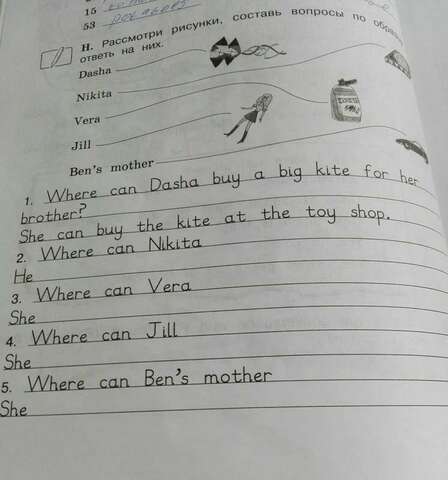 15
53
Н. Рассмотри рисунки, составь вопросы по
ответь на них.
Dasha
Nikita
Vera
Jill
Ben's mother
1. Where can Dasha buy a big kite for her
brother?
She can buy the kite at the toy shop.
2. Where can Nikita
He
3. Where can Vera
She
4. Where can Jill
She
5. Where can Ben's mother
She